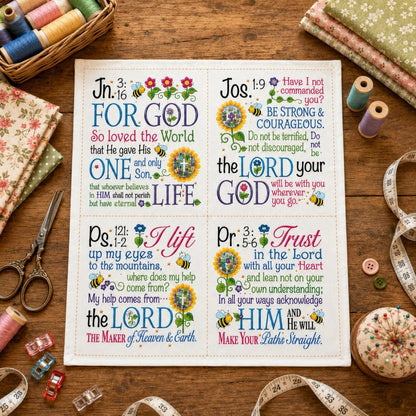 Jn. 3:
16
FOR GOD
So loved the World
that He gave His
ONE and only
Son,
that whoever believes
in HIM shall not perish
but have eternal LIFE
Jos. 1:9 Have I not
commanded
you?
BE STRONG &
COURAGEOUS.
Do not be terrified, Do
not discouraged, not
be
the LORD your
GOD will be with you
wherever
you go.
Ps. 121:
1-2 I lift
up my eyes
to the mountains,
where does my help
come from?
My help comes from...
the LORD
THE MAKER of Heaven & Earth.
Pr. 3:
5-6 Trust
in the Lord
with all your Heart
and lean not on your
own understanding;
In all your ways acknowledge
HIM AND
HE WILL
MAKE YOUR Paths Straight.